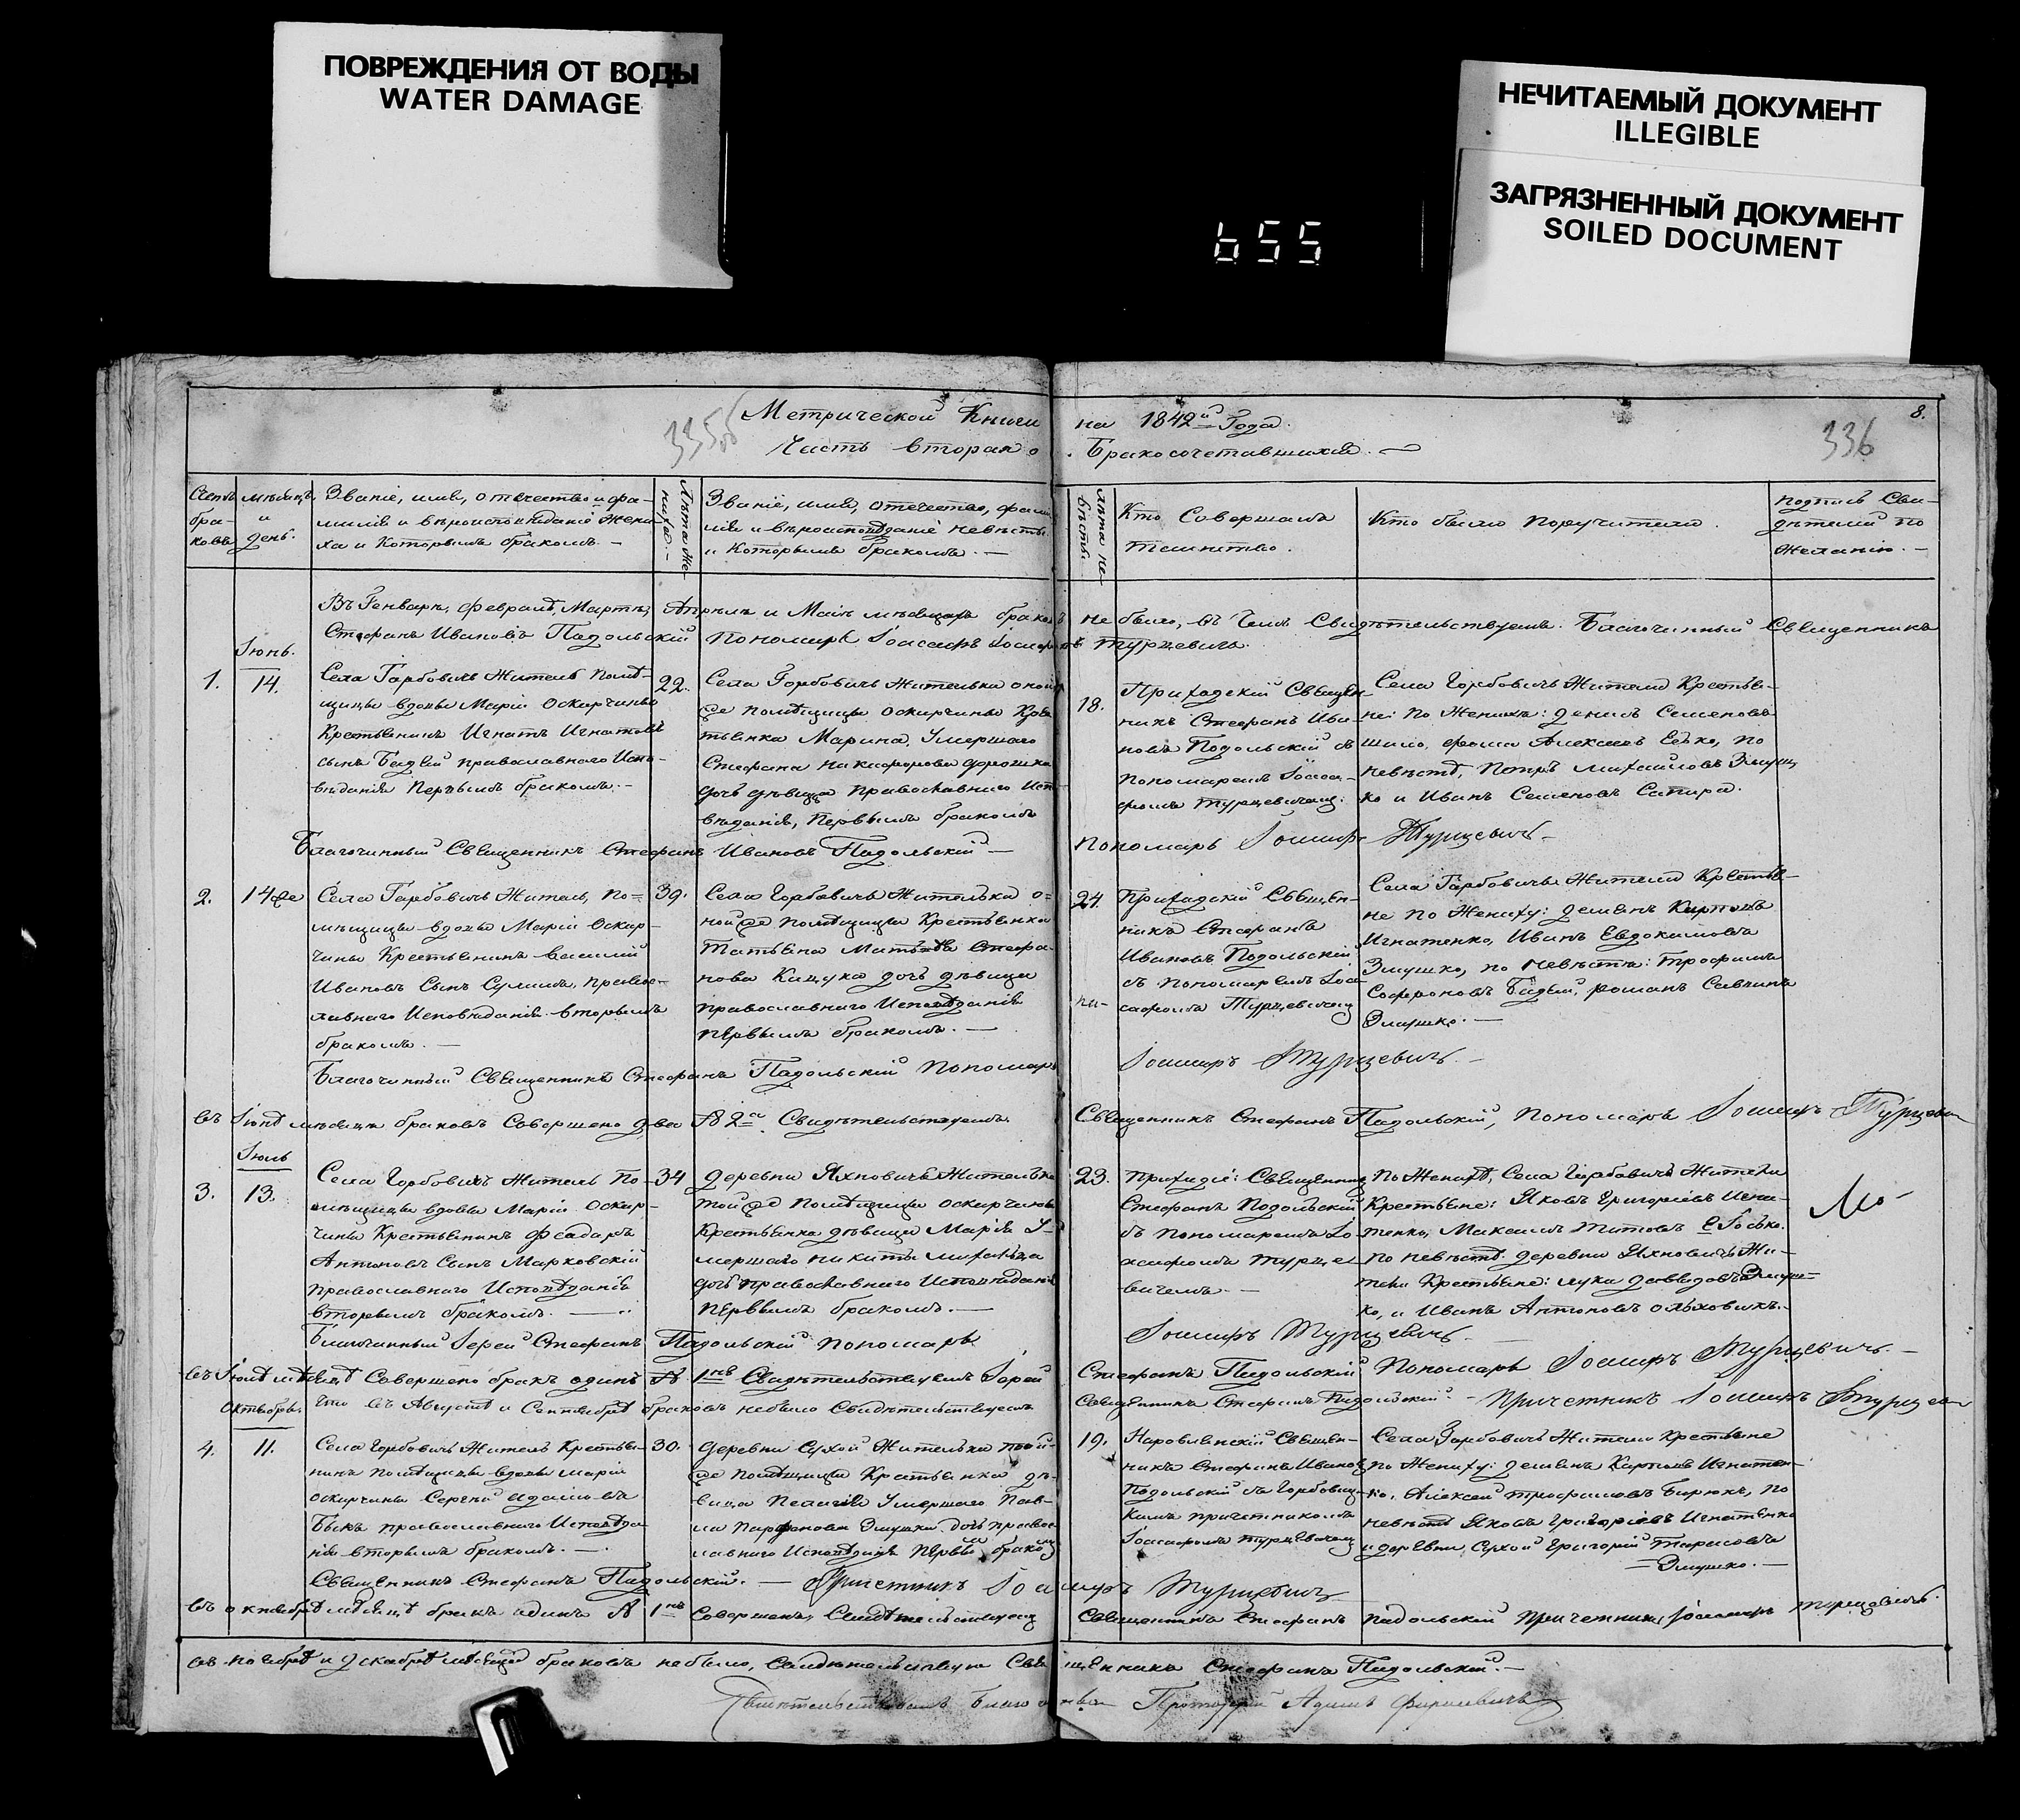 ПОВРЕЖДЕНИЯ ОТ ВОДЫ
WATER DAMAGE
НЕЧИТАЕМЫЙ ДОКУМЕНТ
ILLEGIBLE
ЗАГРЯЗНЕННЫЙ ДОКУМЕНТ
SOILED DOCUMENT
655
Метрической Книги на 1842й Года.
8.
335об
336
Часть вторая о Бракосочетавшихся.
Счетъ бра-ковъ
мѣсяцъ и день.
Званіе, имя, отчество и фа-
милія и вѣроисповѣданіе Жени-
ха и Которымъ бракомъ.
Лѣта Же-ниха.
Званіе, имя, отчество, фами
лія и вѣроисповѣданіе невѣсты
и Которымъ бракомъ.
Лѣта не-вѣсты.
Кто Совершалъ
таинство.
Кто были поручители.
подпись Сви-
дѣтелей по
желанію.
Въ Генварѣ, февралѣ, Мартѣ, Апрѣлѣ и Маіѣ мѣсяцахъ браковъ не было, въ чемъ Свидѣтельствуемъ. Благочинный Священникъ
Стефанъ Ивановъ Падольскій Пономарь Іоасафъ Турцевичъ.
Іюнь.
1.
14.
Села Гарбовичъ Житель помѣ-
щицы вдовы Маріи Оскирчины
Крестьянинъ Игнатъ Игнатовъ
сынъ Бадей православнаго Испо-
вѣданія Первымъ бракомъ.
22.
Села Горбовичъ Жителька оной
же помѣщицы Оскирчины Кре
тьянка Марина, Умершаго
Стефана Никифорова Дорошка
дочь дѣвица православнаго Исп
вѣданія, первымъ бракомъ
18.
Приходскій Священ-
никъ Стефанъ Ива-
новъ Подольскій съ
пономаремъ Іоаса-
фомъ Турцевичемъ.
Села Горбовичъ Жители Крестья-
не: по Женихѣ: Денисъ Семеновъ
Шило, Фома Алексѣевъ Едко, по
невѣстѣ, Петръ Михайловъ Змуш
ко и Иванъ Семеновъ Сапира.
Благочинный Священникъ Стефанъ Ивановъ Падольскій
Пономарь Іоасафъ Турцевичъ
2.
14же
Села Гарбовичъ Житель, по-
мѣщицы вдовы Маріи Оскир-
чины Крестьянинъ Василій
Ивановъ Сынъ Сулимъ, правос-
лавнаго Исповѣданія вторымъ
бракомъ.
39.
Села Горбовичъ Жителька о-
ной же помѣщицы Крестьянка
Татьяна Матвѣева Стефа-
нова Кацука дочь дѣвица
православнаго Исповѣданія
первымъ бракомъ.
24.
Приходскій Священ-
никъ Стефанъ
Ивановъ Подольскій
съ пономаремъ Іоа-
сафомъ Турцевичемъ
Села Гарбовичъ Жители Крестья-
не по Жениху: Демьянъ Карповъ
Игнатенко, Иванъ Евдокимовъ
Змушко, по невѣстѣ: Трофимъ
Софроновъ Бадей, романъ Савчинъ
Змушко.
Благочинный Священникъ Стефанъ Падольскій Пономарь
Іоасафъ Турцевичъ
въ Іюнѣ мѣсяцѣ браковъ Совершено два № 2й Свидѣтельствуемъ
Священникъ Стефанъ Падольскій, Пономарь Іоасафъ Турцевичъ
Іюль
3.
13.
Села Горбовичъ Житель По-
мѣщицы вдовы Маріи Оскир-
чины Крестьянинъ Феадоръ
Антоновъ Сынъ Марковскій
православнаго Исповѣданія
вторымъ бракомъ.
34
деревни Яхновичъ Жителька
той же помѣщицы Оскирчины
Крестьянка дѣвица Марія У-
мершаго Никиты
дочь православнаго Исповѣданія
первымъ бракомъ.
23.
Приходс: Священникъ
Стефанъ Подольскій
съ пономаремъ Іо-
асафомъ Турце
вичемъ.
По Женихѣ, Села Горбовичъ Жители
Крестьяне: Яковъ Григорьевъ Игна-
тенко, Максимъ Титовъ
по невѣстѣ деревни Яхновичъ Жи-
тели Крестьяне: Лука Давыдовъ Змуш-
ко, и Иванъ Антоновъ Ольховикъ.
Благочинный Іерей Стефанъ Падольскій Пономарь
Іоасафъ Турцевичъ
въ Іюлѣ мѣсяцѣ Совершено бракъ одинъ № 1нъ Свидѣтельствуемъ Іерей
Стефанъ Падольскій Пономарь Іоасафъ Турцевичъ.
Октябрь.
Что въ Августѣ и Сентябрѣ браковъ небыло Свидѣтельствуемъ
Священникъ Стефанъ Падольскій. Причетникъ Іоасафъ Турцевич
4.
11.
Села Горбовичъ Житель Крестья-
нинъ помѣщицы вдовы Маріи
Оскирчины Сергей Адамовъ
Быкъ православнаго Исповѣда
нія вторымъ бракомъ.
30.
Деревни Сухой Жителька той
же помѣщицы Крестьянка дѣ-
вица Пелагія Умершаго Пав-
ла Парфенова Змушка дочь правос
лавнаго Исповѣданія первымъ бракомъ
19.
Наровлянскій Священ-
никъ Стефанъ Ивановъ
Подольскій съ Горбович-
кимъ причетникомъ
Іоасафомъ Турцевичемъ
Села Гарбовичъ Жители Крестьяне
по Жениху: Демьянъ Карповъ Игнатен-
ко, Алексей Трофимовъ Бирюкъ, по
невѣстѣ Яковъ Григорьевъ Игнатенко
и деревни Сухой Григорій Тарасовъ
Змушко.
Священникъ Стефанъ Падольскій. Причетникъ Іоасафъ Турцевичъ
въ октябрѣ мѣсяцѣ бракъ одинъ № 1нъ Совершенъ, Свидѣтельствуемъ
Священникъ Стефанъ Падольскій Причетникъ Іоасафъ Турцевичъ.
въ ноябрѣ и Декабрѣ мѣсяцѣ браковъ небыло, Свидѣтельствую Священникъ Стефанъ Падольскій.
Свидѣтельствовалъ Благочинный Протоіерей Адамъ